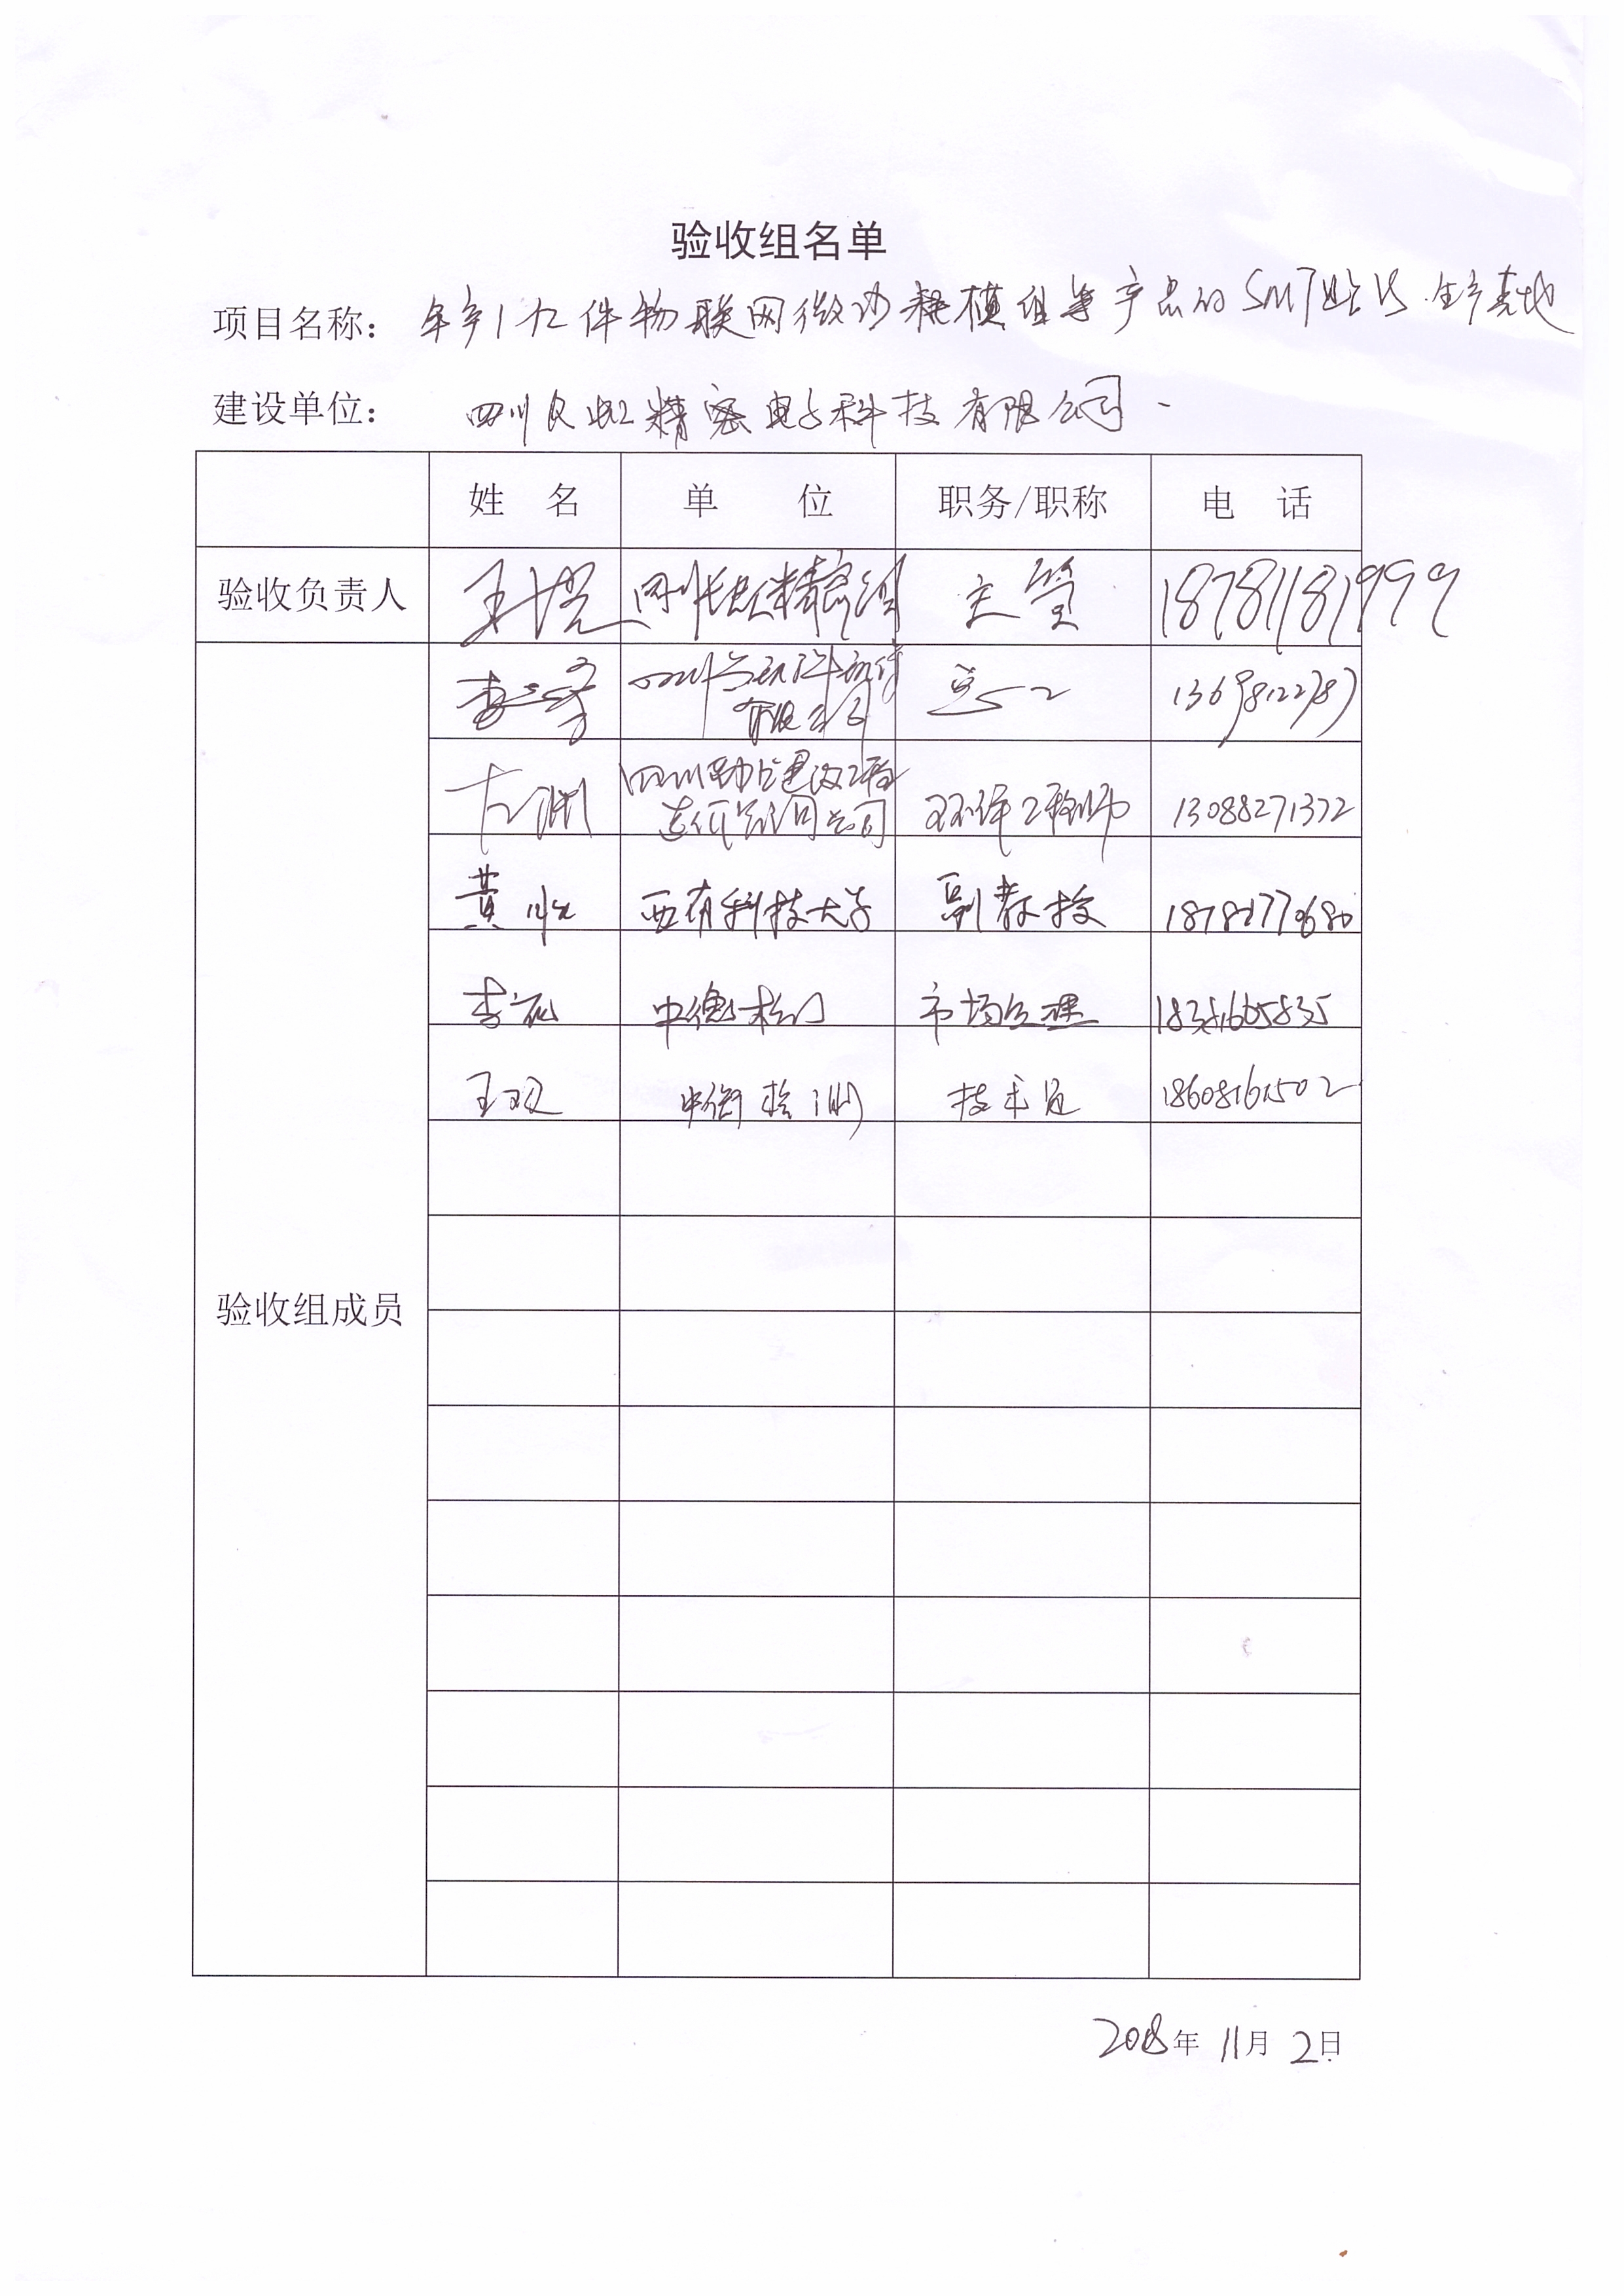 验收组名单
项目名称: 年产1亿件物联网微功耗模组等产品的SMT贴片生产基地
建设单位: 四川长虹精密电子科技有限公司
姓 名 单 位 职务/职称 电 话
验收负责人 王 四川长虹精密 主管 18781181999
李 四川 有限公司 总工
左渊 四川 建设工程 造价 公司 环评工程师 13088271372
黄 西南科技大学 副教授 18781770680
李 中衡检测 市场经理 18381665835
王双 中衡检测 技术员 18608161502
验收组成员
2018年 11月 2日